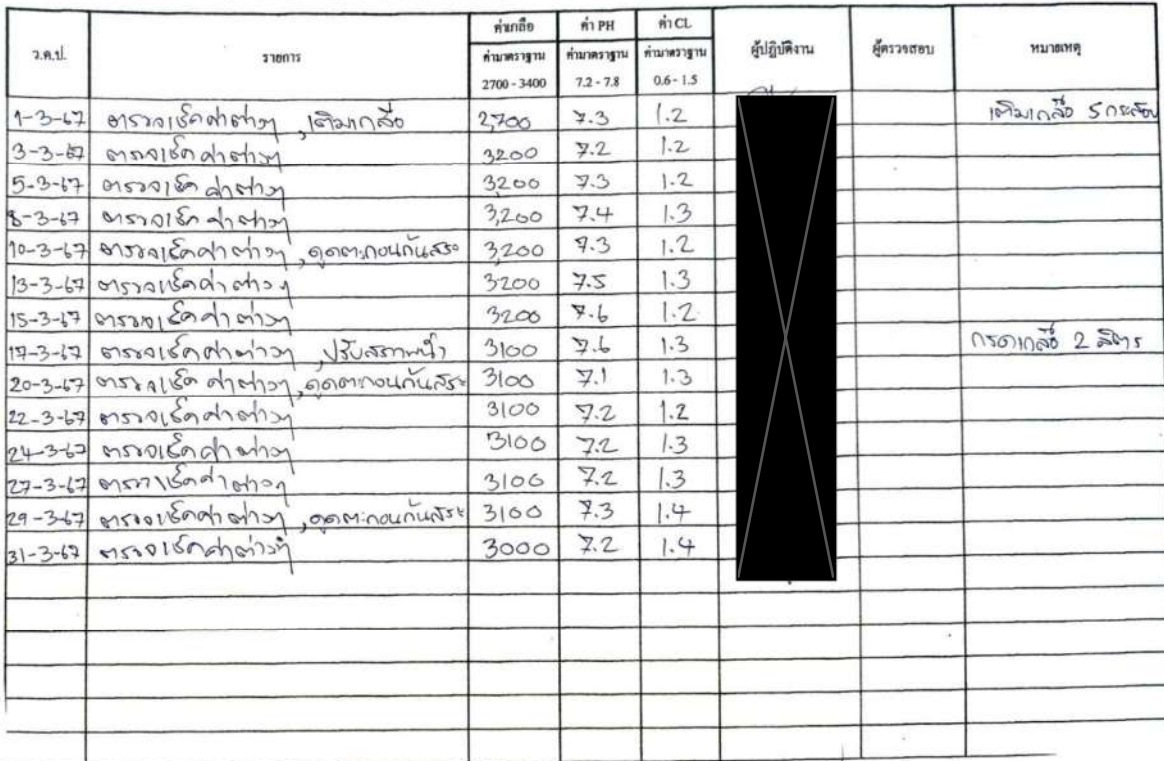 ว.ด.ป. รายการ ค่าเกลือ ค่า PH ค่า CL ผู้ปฏิบัติงาน ผู้ตรวจสอบ หมายเหตุ
ค่ามาตราฐาน ค่ามาตราฐาน ค่ามาตราฐาน
2700 - 3400 7.2 - 7.8 0.6 - 1.5
1-3-67 ตรวจเช็คค่าต่างๆ , เติมเกลือ 2,700 7.3 1.2 เติมเกลือ 5 กระสอบ
3-3-67 ตรวจเช็คค่าต่างๆ 3200 7.2 1.2
5-3-67 ตรวจเช็คค่าต่างๆ 3200 7.3 1.2
8-3-67 ตรวจเช็คค่าต่างๆ 3,200 7.4 1.3
10-3-67 ตรวจเช็คค่าต่างๆ , ดูดตะกอนก้นสระ 3,200 7.3 1.2
13-3-67 ตรวจเช็คค่าต่างๆ 3200 7.5 1.3
15-3-67 ตรวจเช็คค่าต่างๆ 3200 7.6 1.2
17-3-67 ตรวจเช็คค่าต่างๆ , ปรับสภาพน้ำ 3100 7.6 1.3 กรดเกลือ 2 ลิตร
20-3-67 ตรวจเช็คค่าต่างๆ , ดูดตะกอนก้นสระ 3100 7.1 1.3
22-3-67 ตรวจเช็คค่าต่างๆ 3100 7.2 1.2
24-3-67 ตรวจเช็คค่าต่างๆ 3100 7.2 1.3
27-3-67 ตรวจเช็คค่าต่างๆ 3100 7.2 1.3
29-3-67 ตรวจเช็คค่าต่างๆ , ดูดตะกอนก้นสระ 3100 7.3 1.4
31-3-67 ตรวจเช็คค่าต่างๆ 3000 7.2 1.4